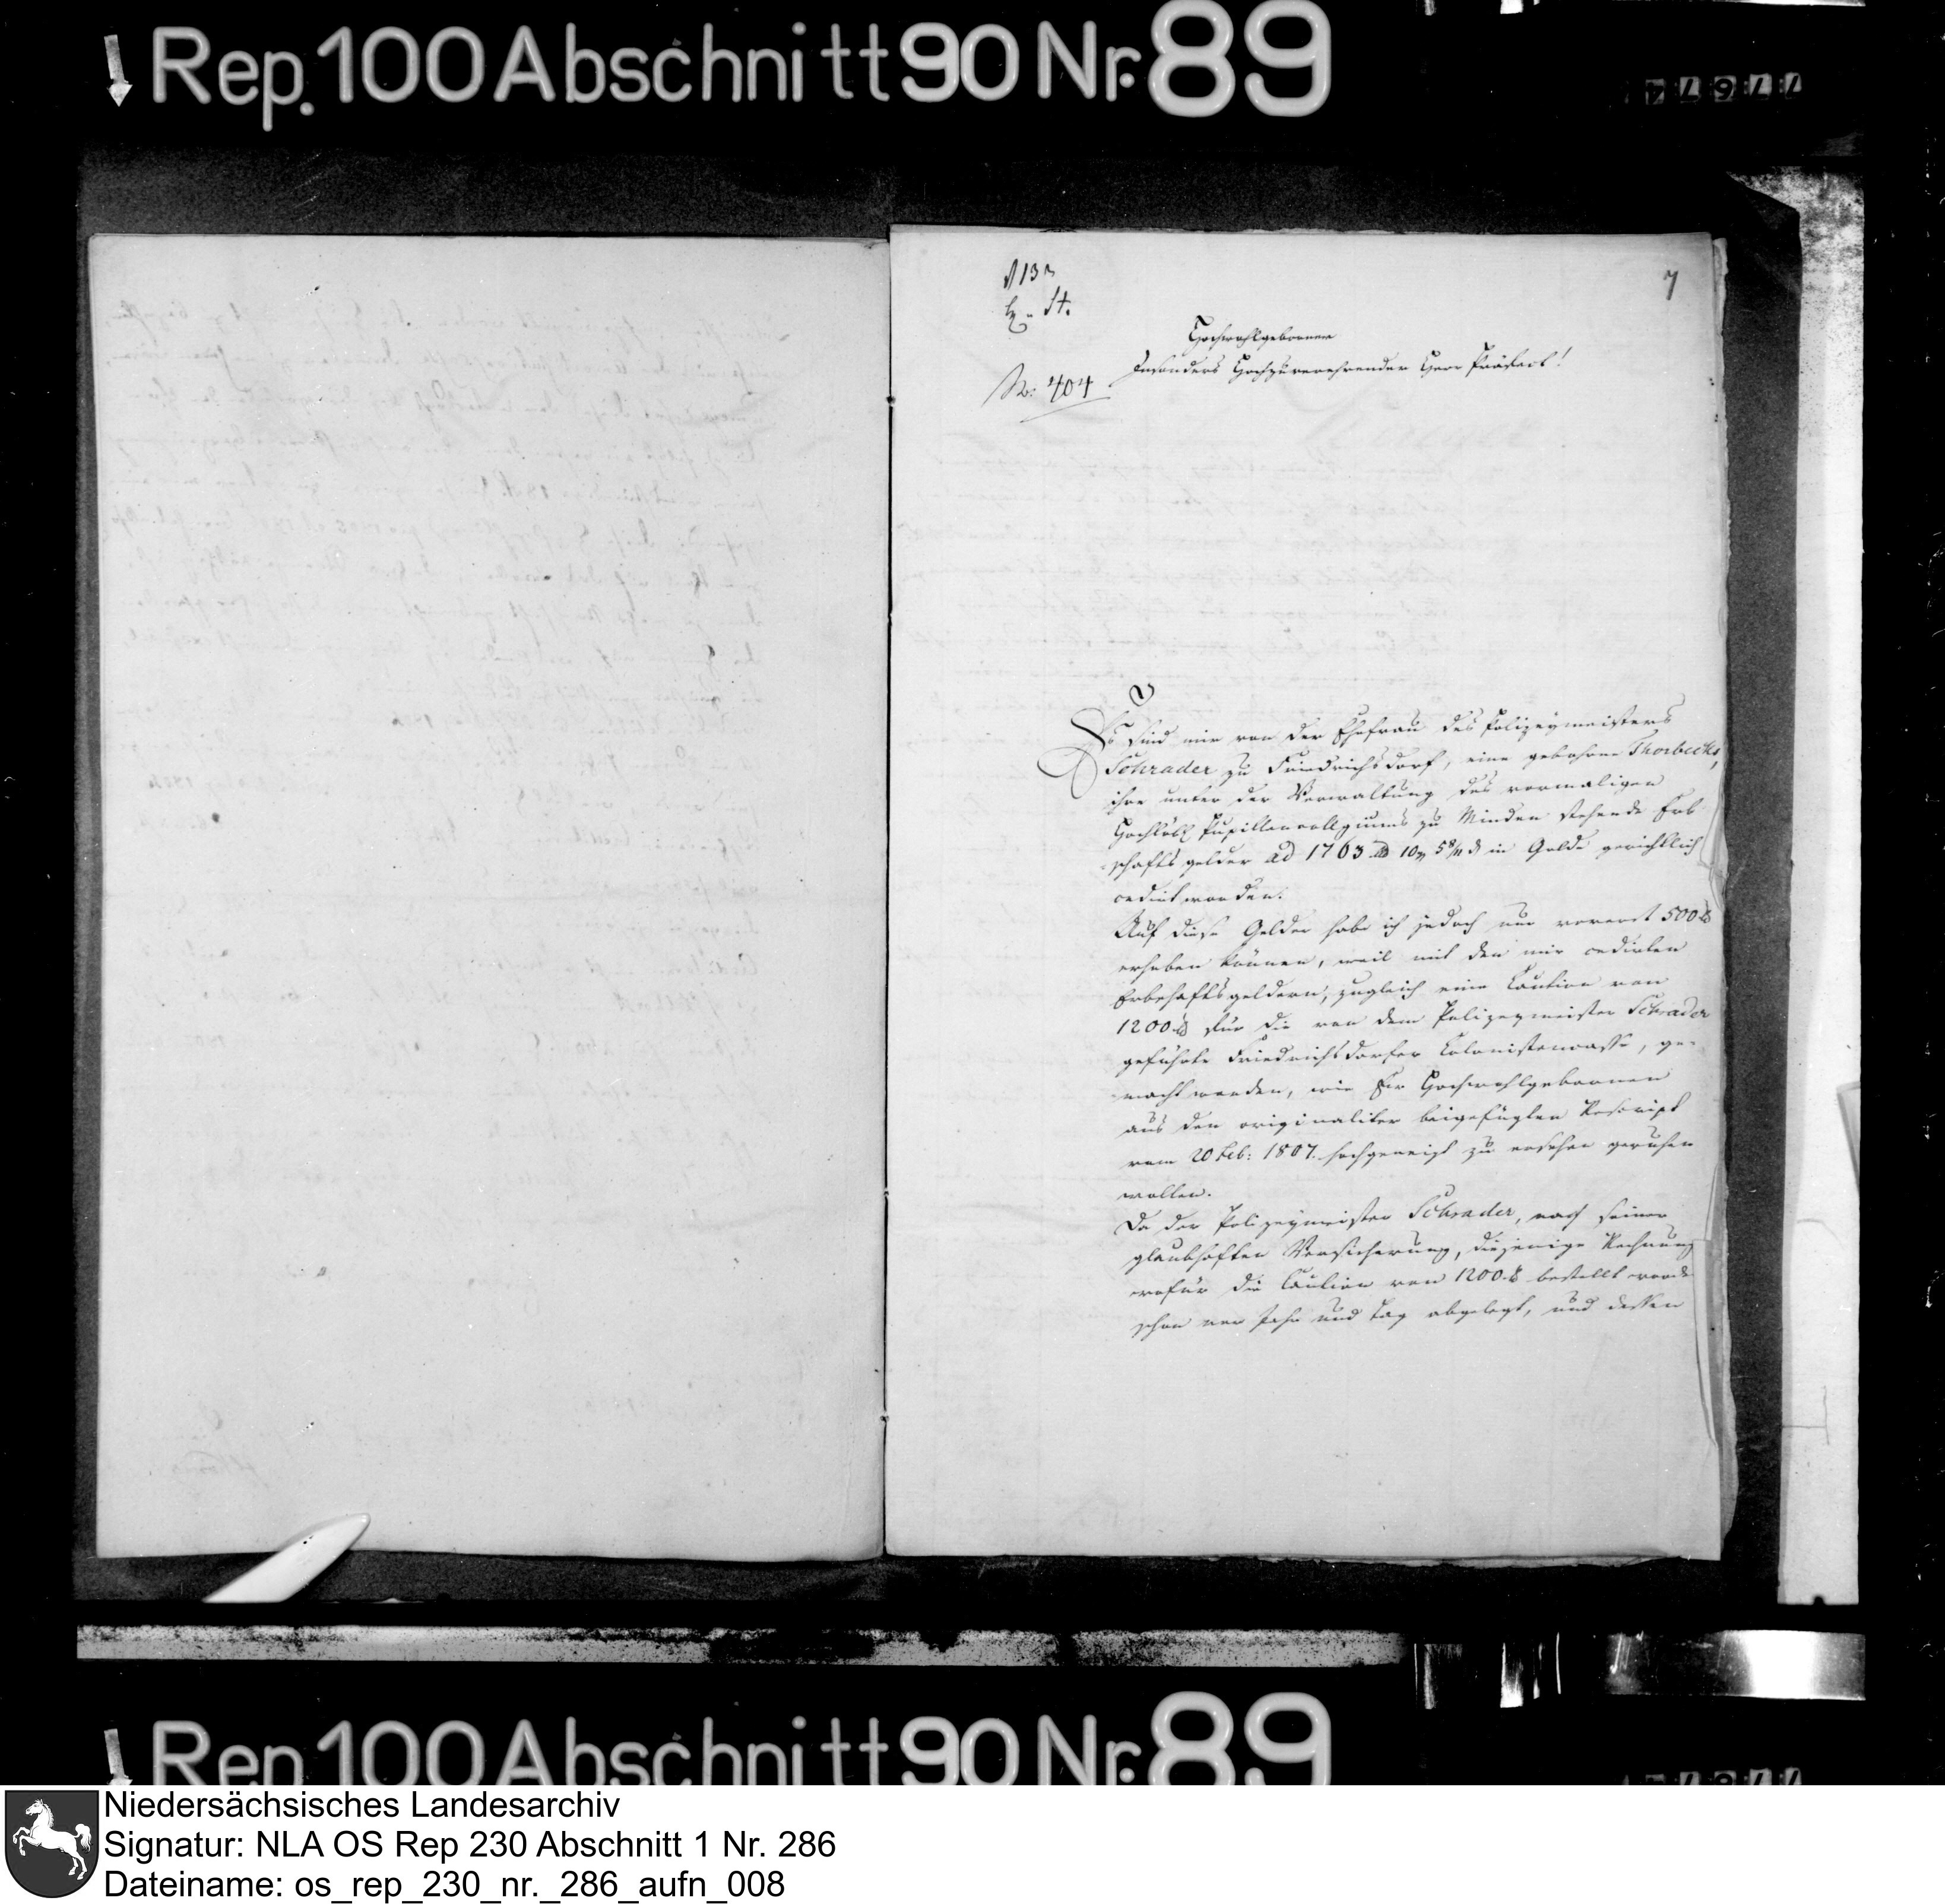 Rep. 100 Abschnitt 90 Nr. 89
7
No: 404
Hochwohlgeborner
Insonders Hochzuverehrender Herr Präfect!
Es sind mir von der Ehefrau des Polizeymeisters
Schrader zu Friedrichsdorf, eine gebohrne Thorbecke,
ihre unter der Verwaltung des vormaligen
Hochlöbl Pupillencollegiums zu Minden stehende Erb
schaftsgelder ad 1763 in Golde gerichtlich
cedirt worden.
Auf diese Gelder habe ich jedoch nur vorerst 500
erheben können, weil mit den mir cedirten
Erbschaftsgeldern, zugleich eine Caution von
1200 für die von dem Polizeymeister Schrader
geführte Friedrichsdorfer Colonistencasse, ge-
macht worden, wie Ew Hochwohlgebornen
aus den originaliter beigefügten Rescript
vom 20 Feb: 1807. hochgeneigt zu ersehen geruhen
wollen.
Da der Polizeymeister Schrader, nach seiner
glaubhaften Versicherung, diejenige Rechnung
wofür die Caution von 1200 bestellt worde
schon vor Jahr und Tag abgelegt, und dessen
Rep. 100 Abschnitt 90 Nr. 89
Niedersächsisches Landesarchiv
Signatur: NLA OS Rep 230 Abschnitt 1 Nr. 286
Dateiname: os_rep_230_nr._286_aufn_008